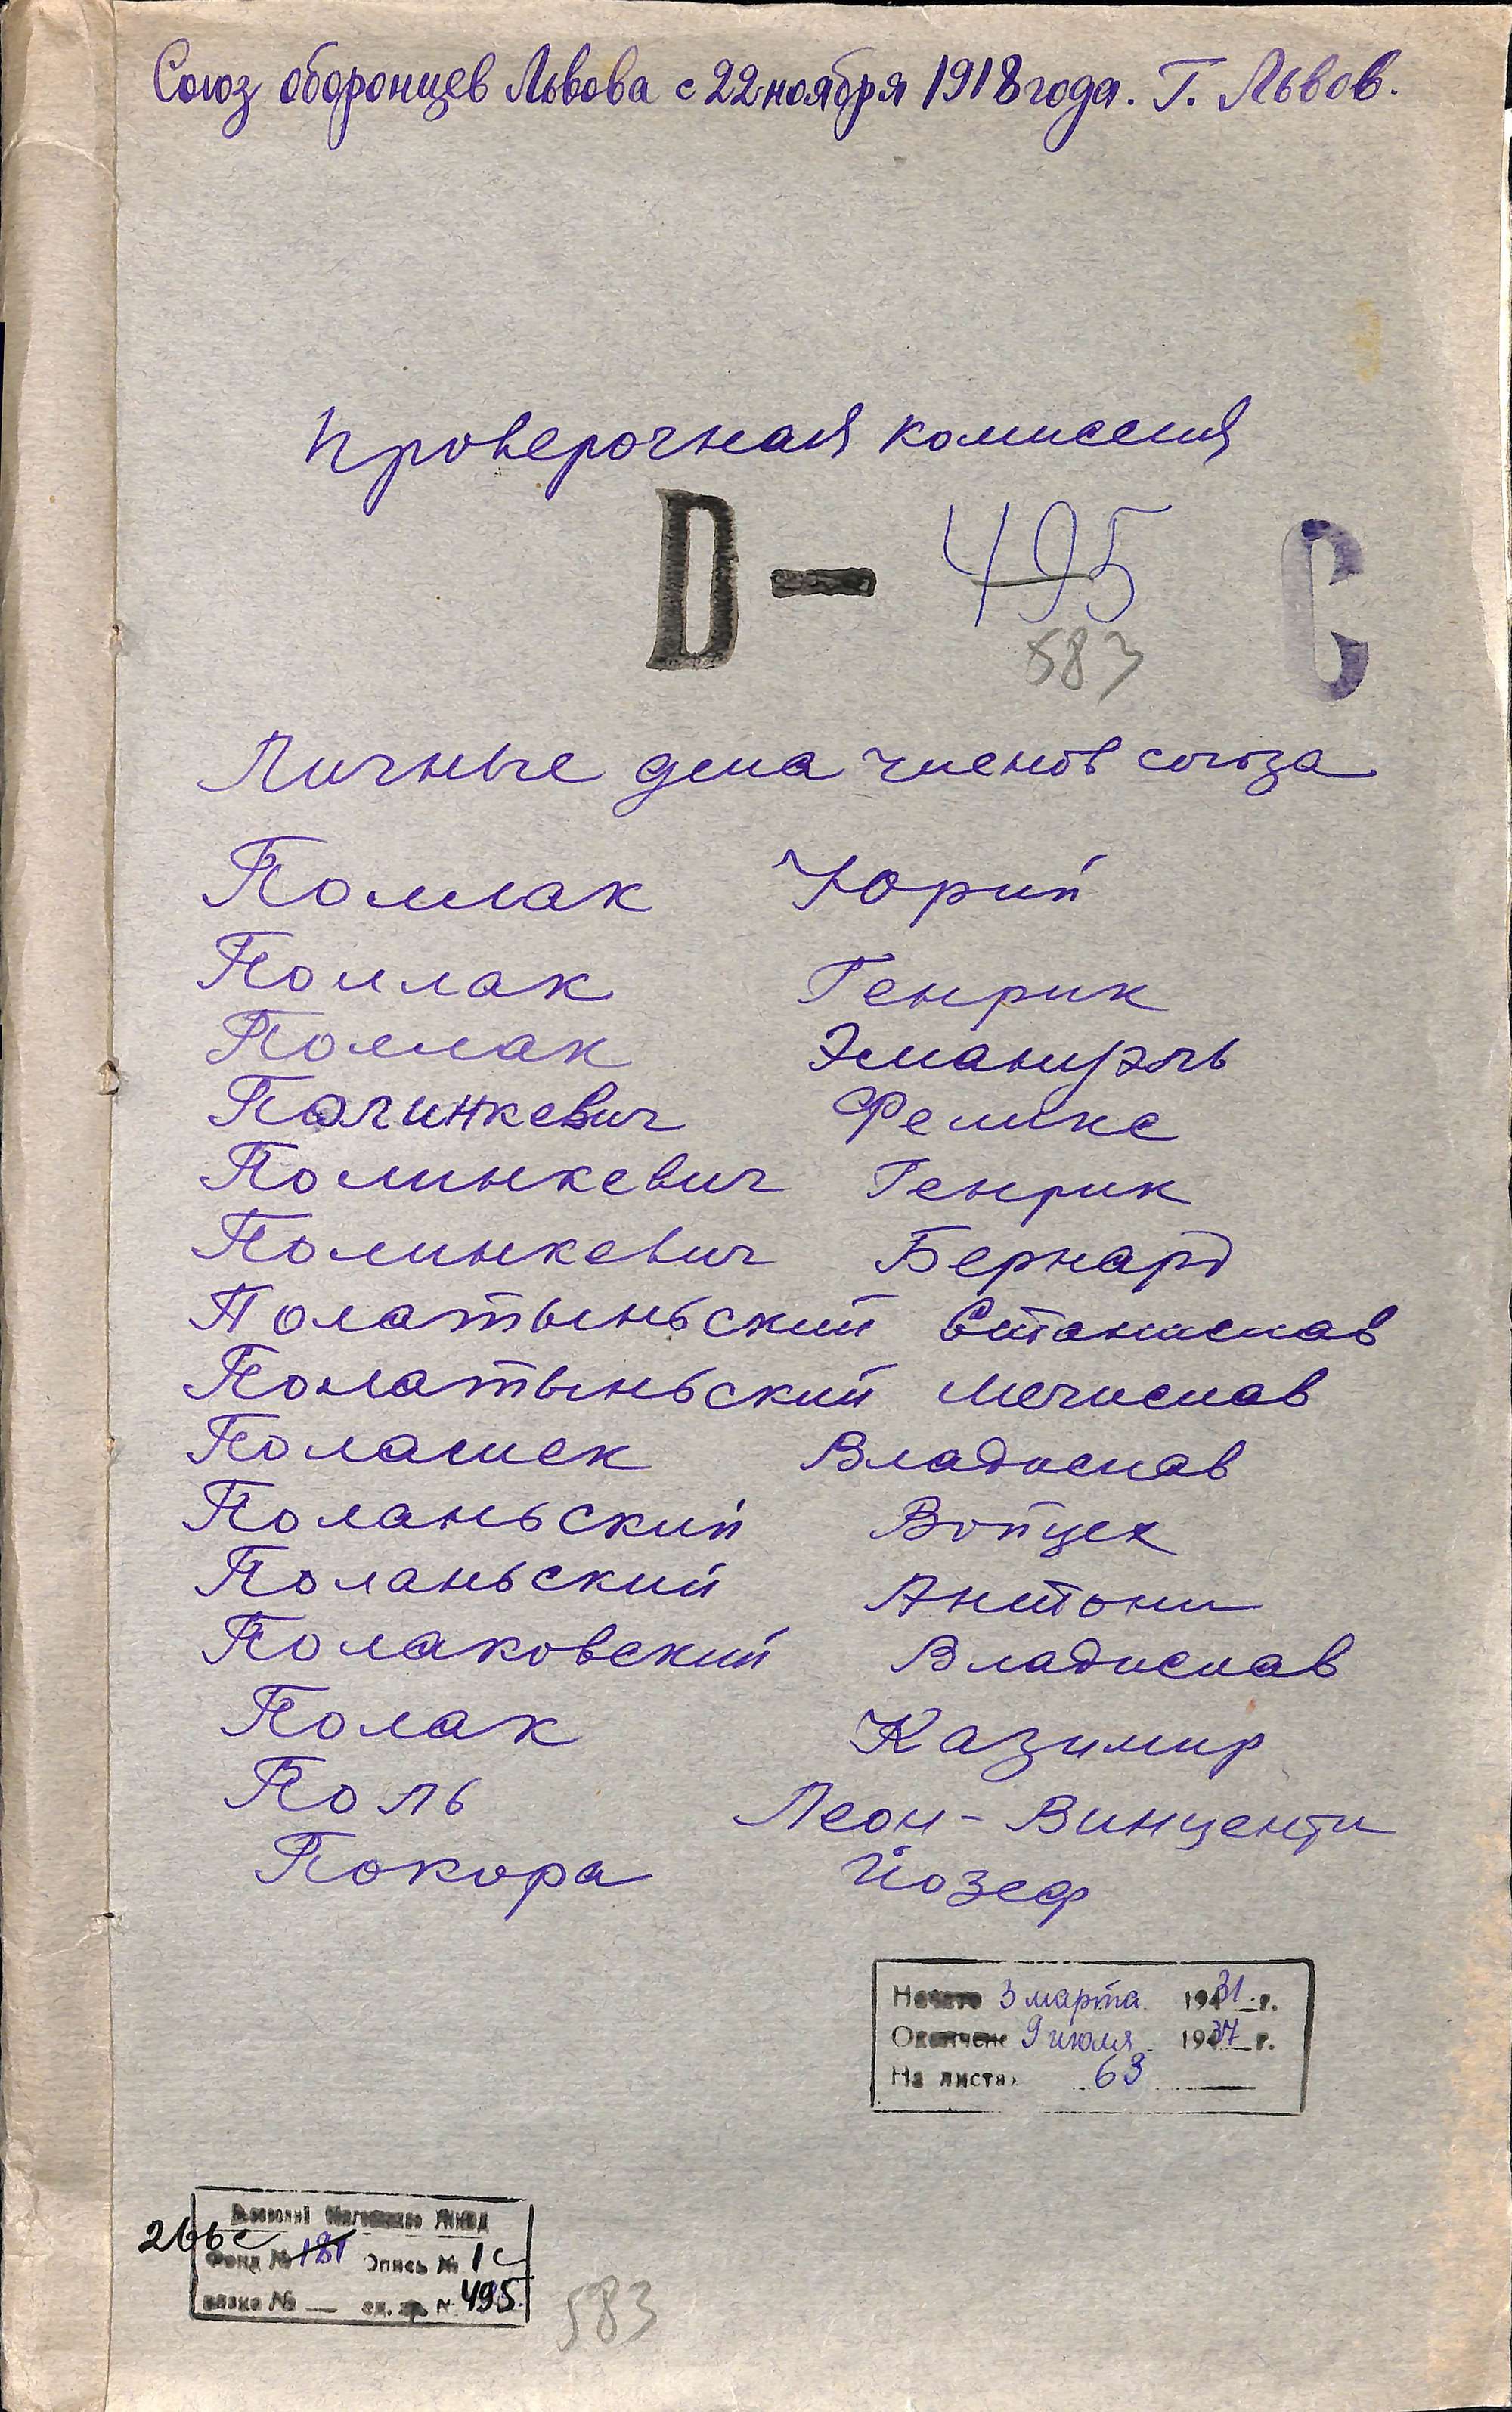 Союз оборонцев Львова с 22 ноября 1918 года. Г. Львов.
Проверочная комиссия
D — 495 C
583
Личные дела членов союза
Поллак Юрий
Поллак Генрик
Поллак Эмануэль
Полинкевич Феликс
Полинкевич Генрик
Полинкевич Бернард
Полатыньский Станислав
Полатыньский Мечислав
Полашек Владислав
Поланьский Войцех
Поланьский Антони
Полаковский Владислав
Полак Казимир
Поль Леон-Винценти
Покора Йозеф
Начато 3 марта 1931 г.
Окончено 9 июля 1937 г.
На листах 63
266с
Фонд № 181 Опись № 1с
вязка № — ед. хр. № 495
583